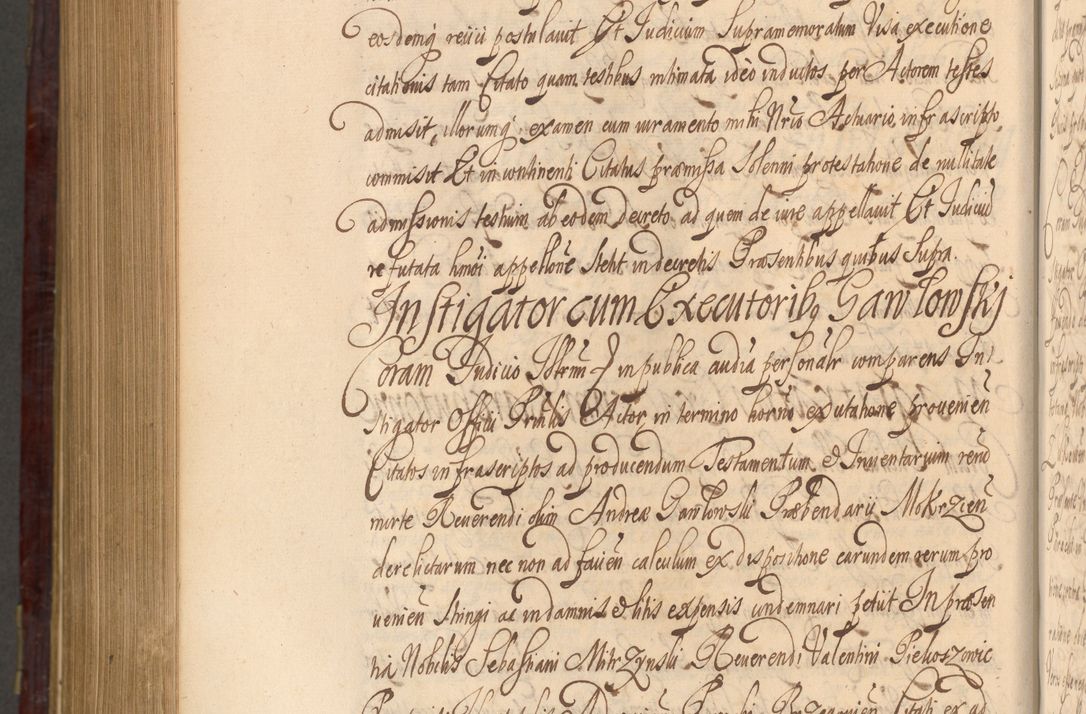 eosdemq reiici postulavit Et Judicium supramemoratum Visa executione
citationis tam Citato quam testibus intimata ideo inductos per Actorem testes
admisit, illorumq examen cum iuramento mihi Nrio Actuario infrascripto
commisit Et in continenti Citatus præmissa solenni protestatione de nullitate
admissionis testium ab eodem decreto ad quem de iure appellavit Et Judiciũ
refutata hmõi appellõne stetit in decretis Præsentibus quibus supra.
Instigator cum Executoribq Gawłowskj
Coram Judicio in publica audia personalr comparens In
stigator Officii Actor, in termino ex citatione provenieñ
Citatos infrascriptos ad producendum Testamentum & Inventarium rerũ
morte Reverendi olim Andreæ Gawłowski Præbendarii Mokrzieñ
derelictarum nec non ad calculum ex dispositione earundem rerum pro
venieñ stringi ac in damnis & litis expensis condemnari petiit In præsen
tia Nobilis Sebastiani Mitrzynski Reverendi Valentini Piekoszowic